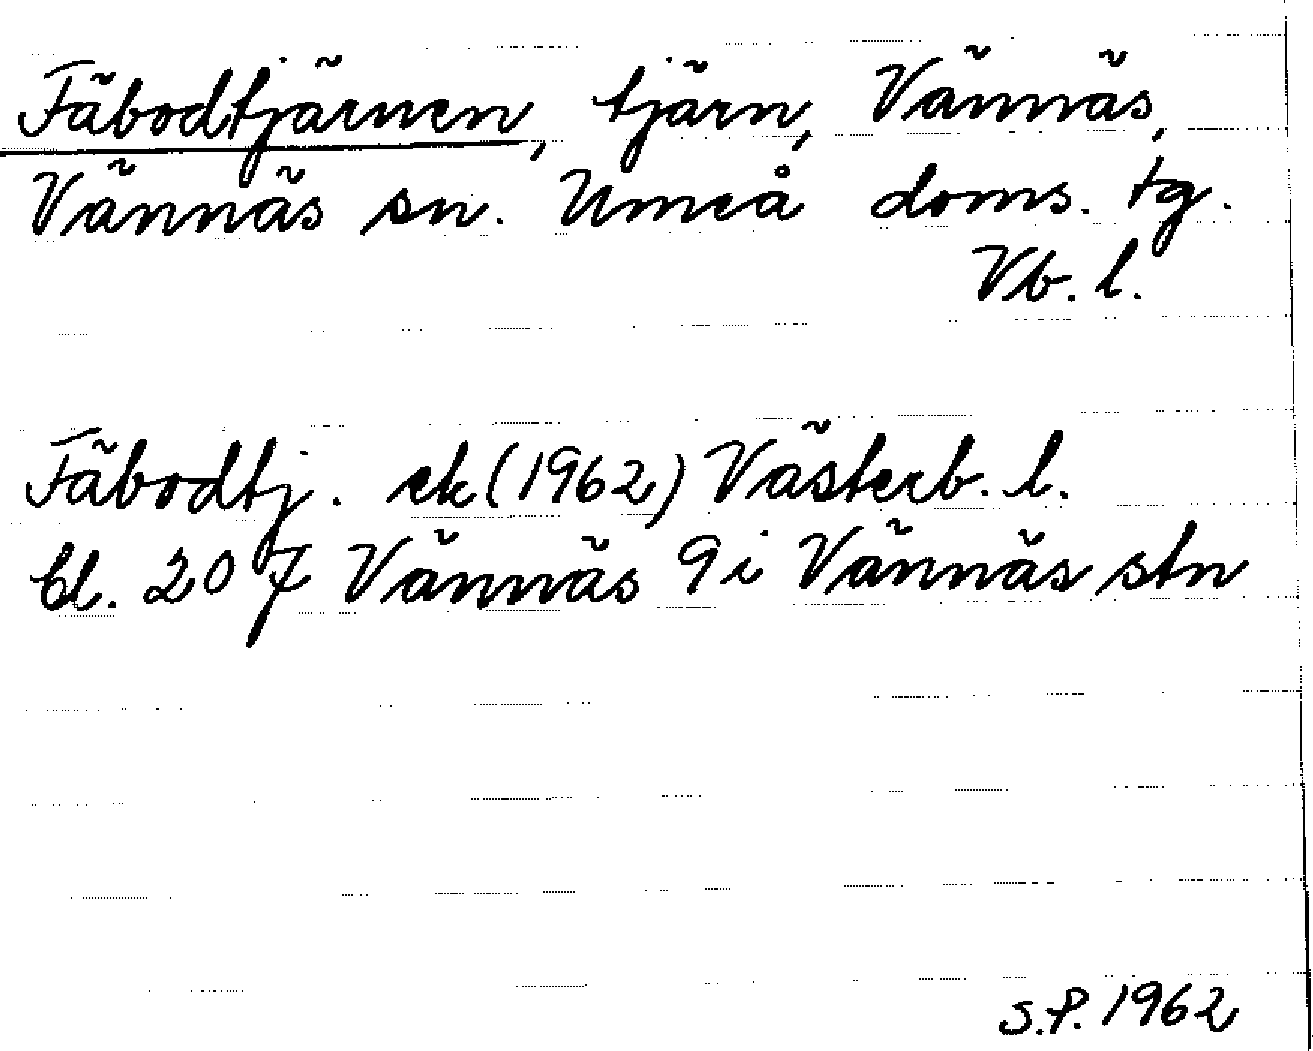 Fäbodtjärnen, tjärn, Vännäs,
Vännäs sn. Umeå doms. tg.
Vb. l.
Fäbodtj. ek (1962) Västerb. l.
bl. 207 Vännäs 9i Vännäs stn
S.P. 1962